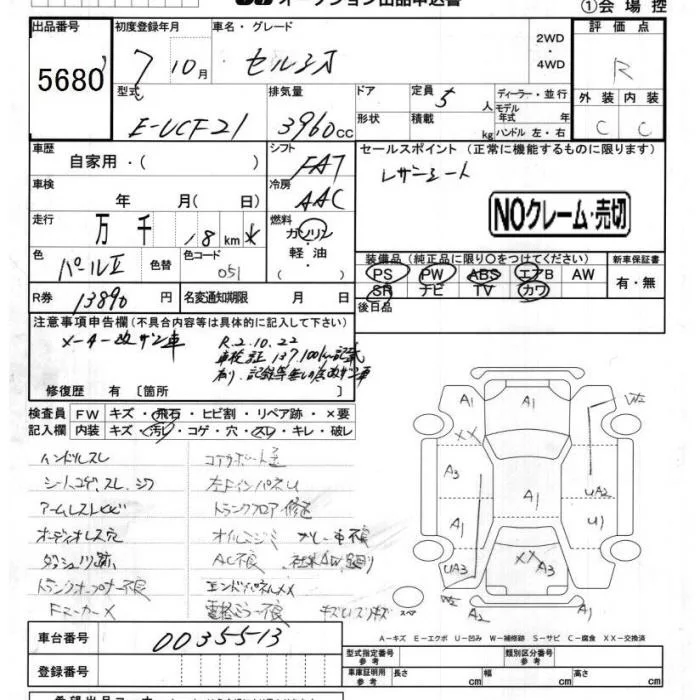 オークション出品申込書
①会場控
出品番号
5680
初度登録年月
7 10月
車名・グレード
セルシオ
2WD
・
4WD
評価点
R
外装 内装
C C
型式
E-UCF21
排気量
3960cc
ドア
形状
定員 5人
積載 kg
ディーラー・並行
モデル年式 年
ハンドル 左・右
車歴
自家用・( )
シフト
FAT
セールスポイント (正常に機能するものに限ります)
レザーシート
NOクレーム・売切
車検
年 月(日)
冷房
AAC
走行
万 千 18 km
燃料
ガソリン
軽・油
( )
色
パールII
色替
色コード
051
装備品(純正品に限り○をつけてください)
PS PW ABS エアB AW
SR ナビ TV カワ
新車保証書
有・無
R券
13890円
名変通知期限 月 日
後日品
注意事項申告欄(不具合内容等は具体的に記入して下さい)
メーター改ザン車
R.2.10.22
車検証 137,100km記載
有り、記録等無しの為改ザン車
修復歴 有〔箇所 〕
検査員
記入欄
FW キズ・飛石・ヒビ割・リペア跡・×要
内装 キズ・汚レ・コゲ・穴・スレ・キレ・破レ
ハンドルスレ
シートコゲ、スレ、シワ
オーディオレス穴
ダッシュノリ跡
トランクオープナー不良
Fマーカー×
コアサポート歪
左Fインパネ U
トランクフロア修正
オイルニジミ
AC不良
エンドパネル××
電格ミラー不良
A1
A1
W2
XX
A3
A1
UA2
A1
U1
XX
A3
UA3
W2
A2
A1
スペア
車台番号
0035513
登録番号
A－キズ E－エクボ U－凹み W－補修跡 S－サビ C－腐食 XX－交換済
型式指定番号
参考
類別区分番号
参考
車庫証明用
参考
長さ cm 幅 cm 高さ cm